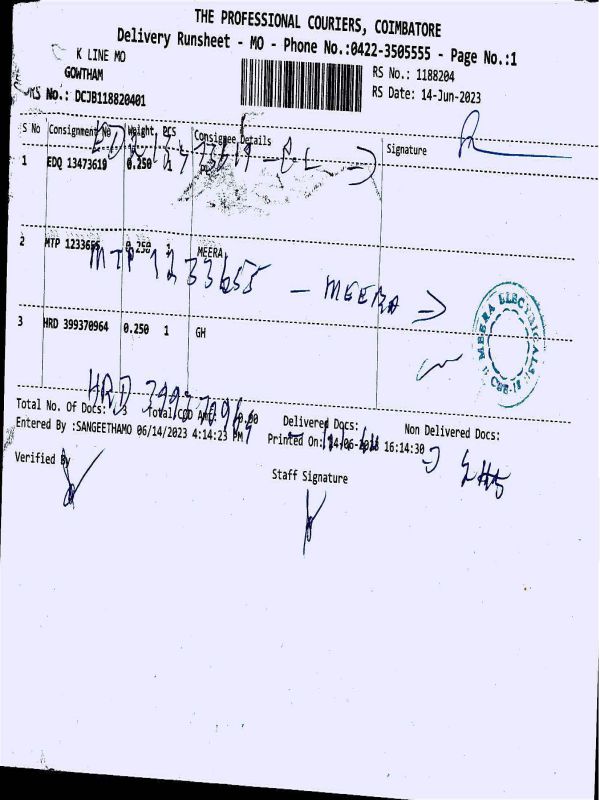 THE PROFESSIONAL COURIERS, COIMBATORE
Delivery Runsheet - MO - Phone No.:0422-3505555 - Page No.:1
K LINE MO
GOWTHAM
RS No.: DCJB118820401
RS No.: 1188204
RS Date: 14-Jun-2023
S No Consignment No Weight PCS Consignee Details Signature
1 EDQ 13473619 0.250 1
EDQ 13473619 - PL
2 MTP 1233655 0.250 1 MEERA
MTP 1233655 - MEERA
MEERA ELECTRICALS
CBE-18
3 HRD 399370964 0.250 1 GH
HRD 399370964
Total No. Of Docs: 3 Total COD Amt: 0.00 Delivered Docs: Non Delivered Docs:
Entered By :SANGEETHAMO 06/14/2023 4:14:23 PM Printed On: 14-06-2023 16:14:30
Verified By
Staff Signature